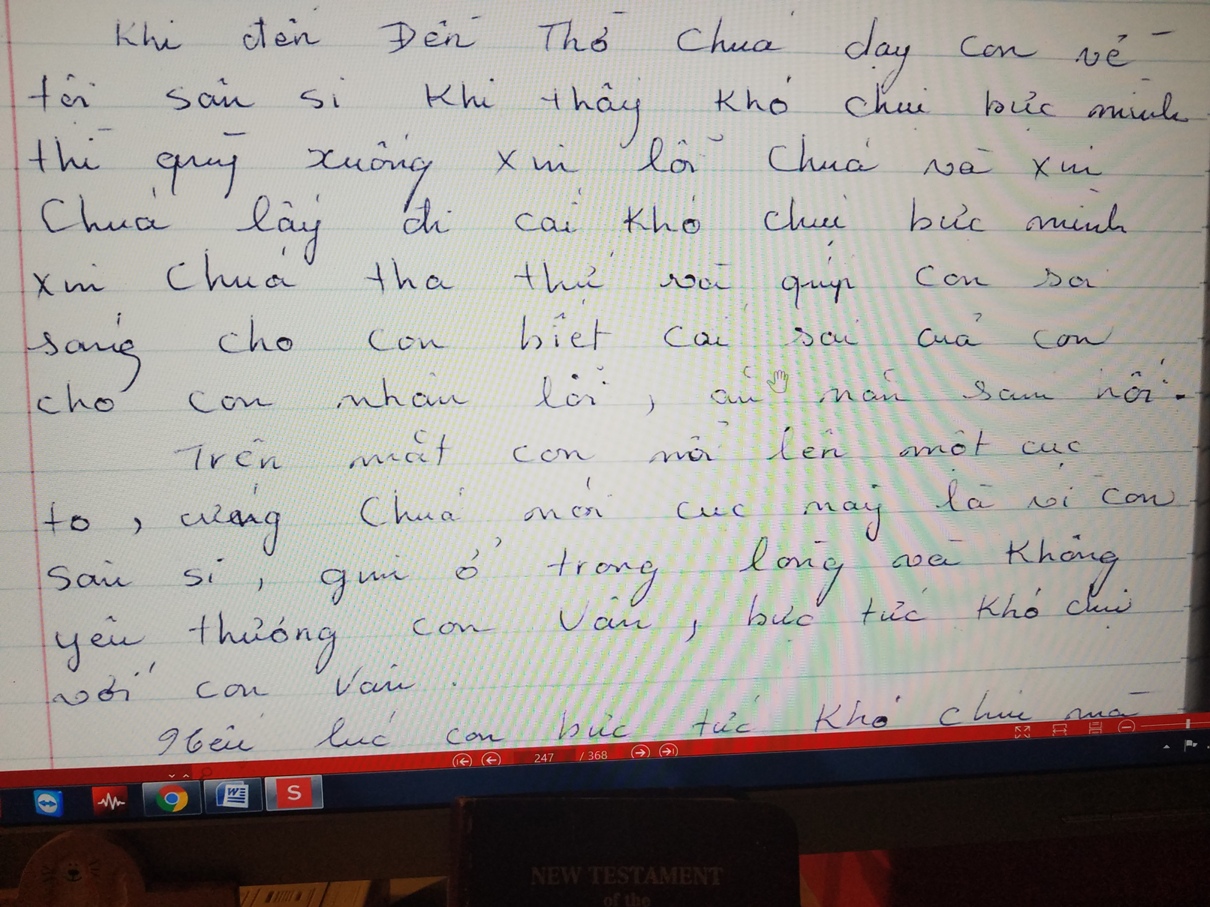 Khi đến Đền Thờ Chúa dạy con về
tội sân si khi thấy khó chịu bực mình
thì quỳ xuống xin lỗi Chúa và xin
Chúa lấy đi cái khó chịu bực mình
xin Chúa tha thứ và giúp con soi
sáng cho con biết cái sai của con
cho con nhận lỗi, ăn năn sám hối.
Trên mắt con nổi lên một cục
to, cứng Chúa nói cục này là vì con
sân si, ghim ở trong lòng và không
yêu thương con Vân, bực tức khó chịu
với con Vân.
Nếu lúc con bực tức khó chịu mà
247 / 368
W
S
NEW TESTAMENT
of the